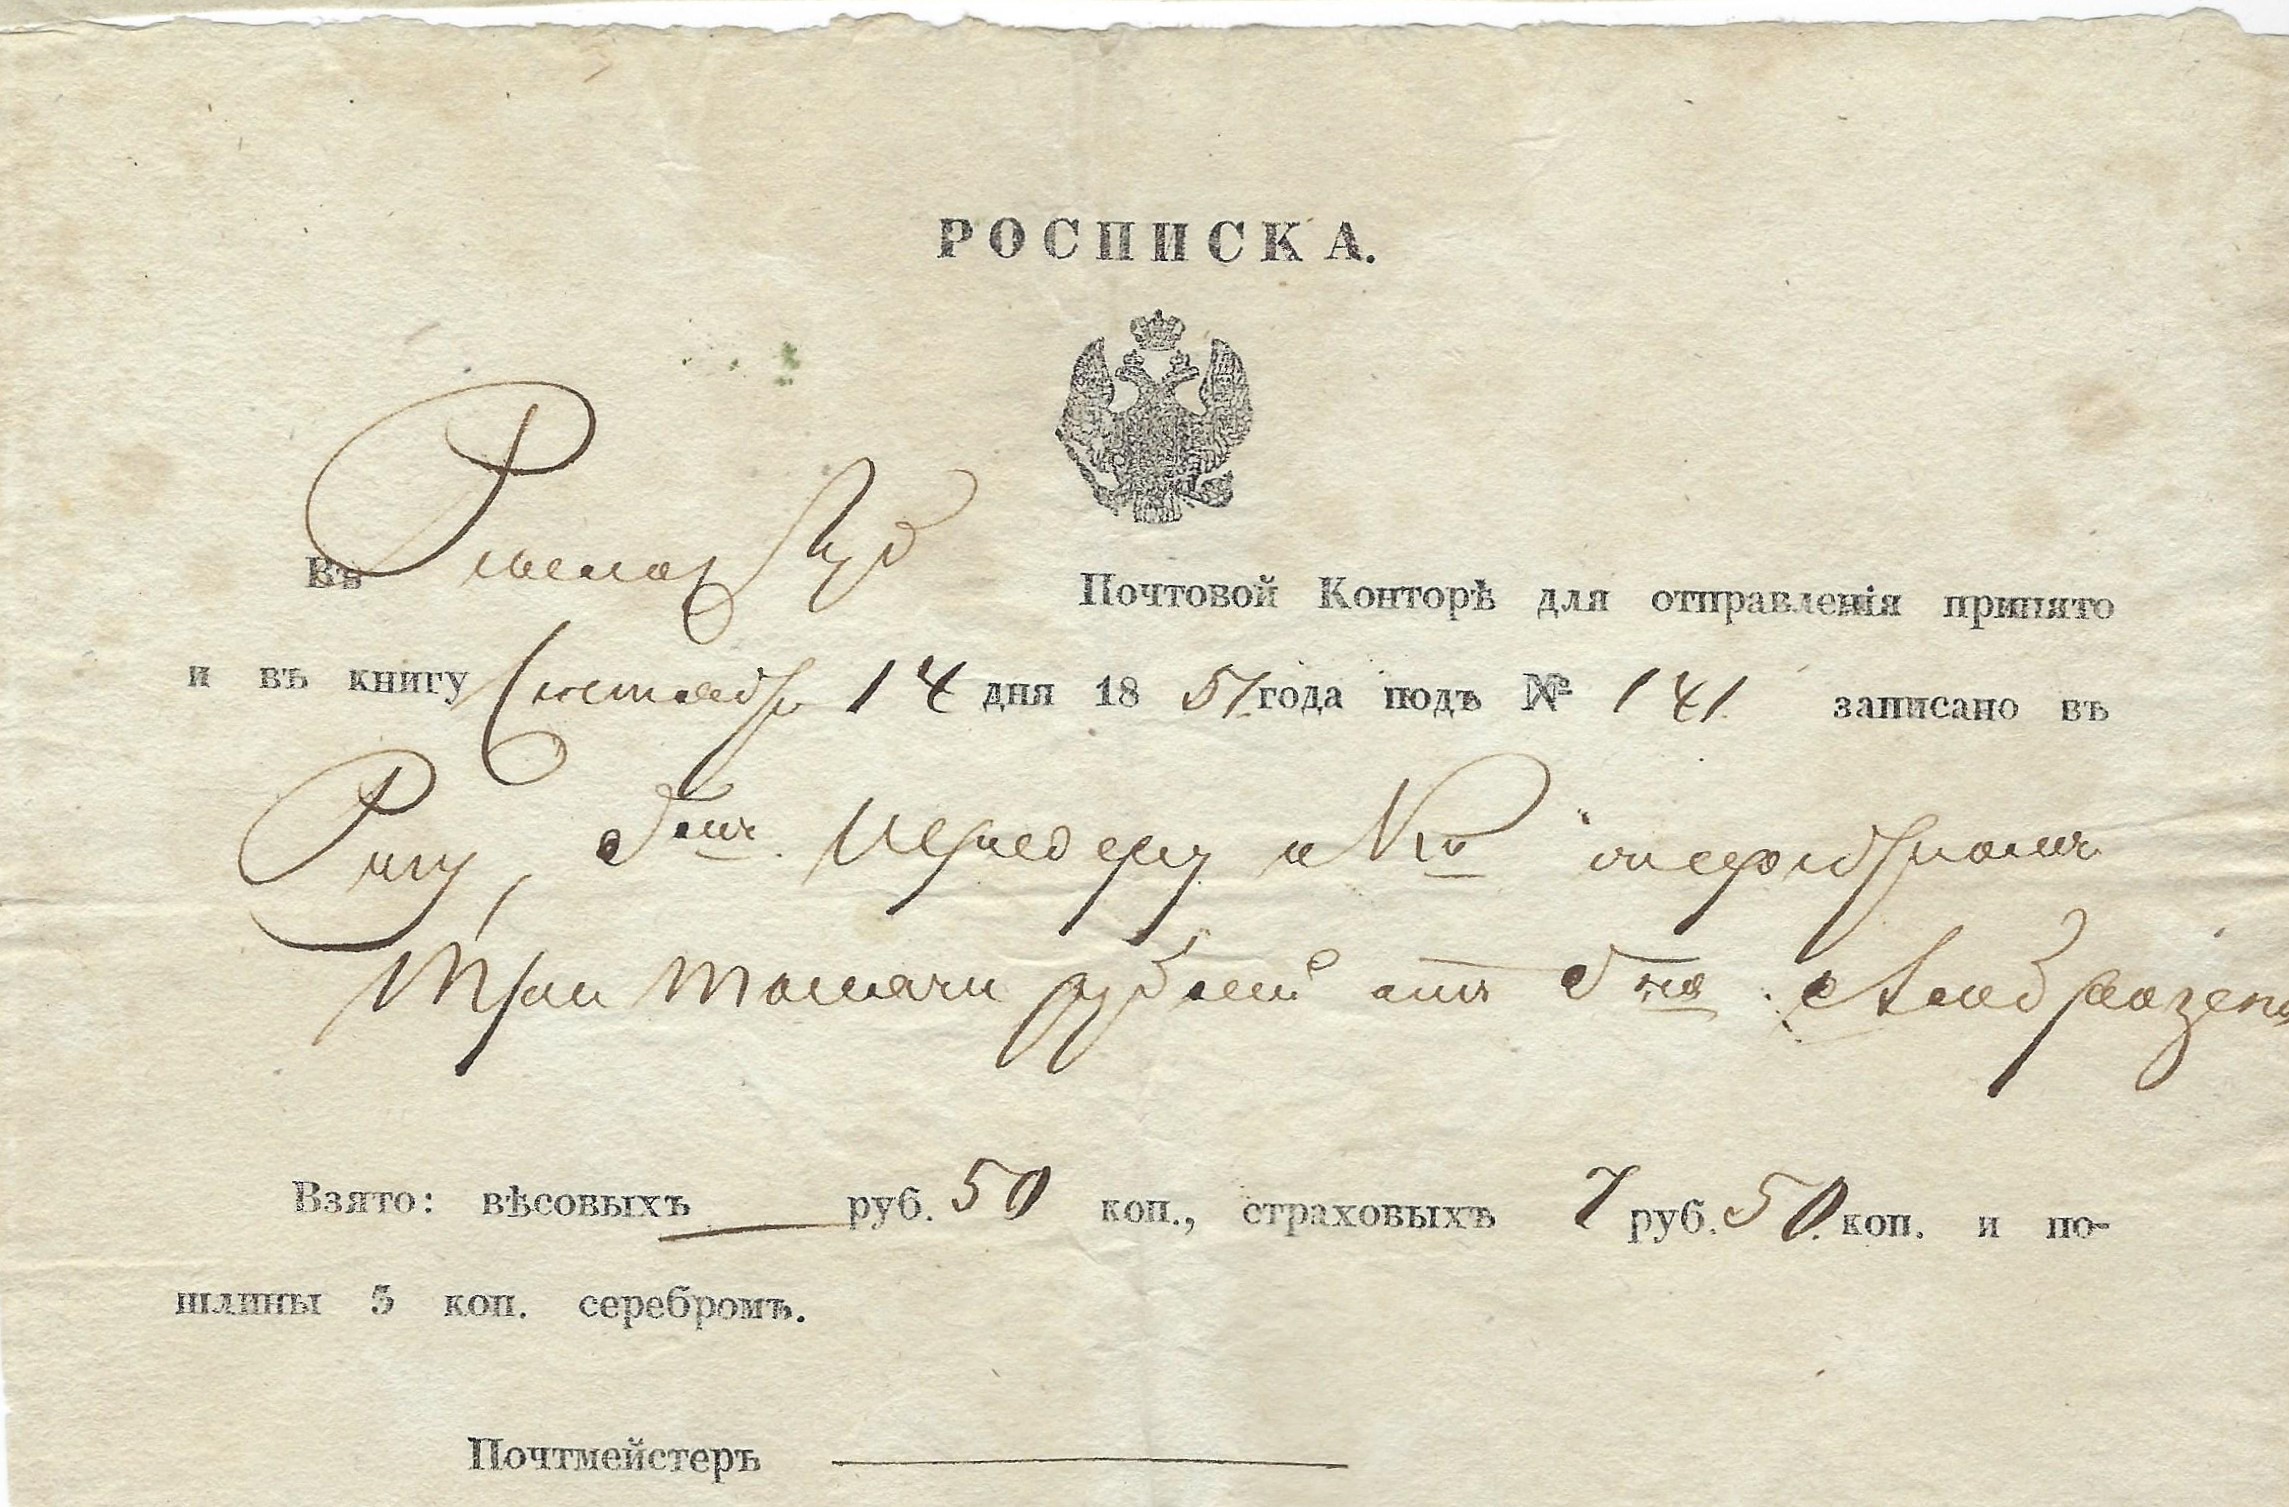 РОСПИСКА.
Въ Почтовой Конторѣ для отправленія принято
и въ книгу Сентября 14 дня 18 51 года подъ № 141. записано въ
Ригу, и Кº серебромъ
Три тысячи рублей отъ
Взято: вѣсовыхъ — руб. 50 коп., страховыхъ 7 руб. 50. коп. и по-
шлины 5 коп. серебромъ.
Почтмейстеръ